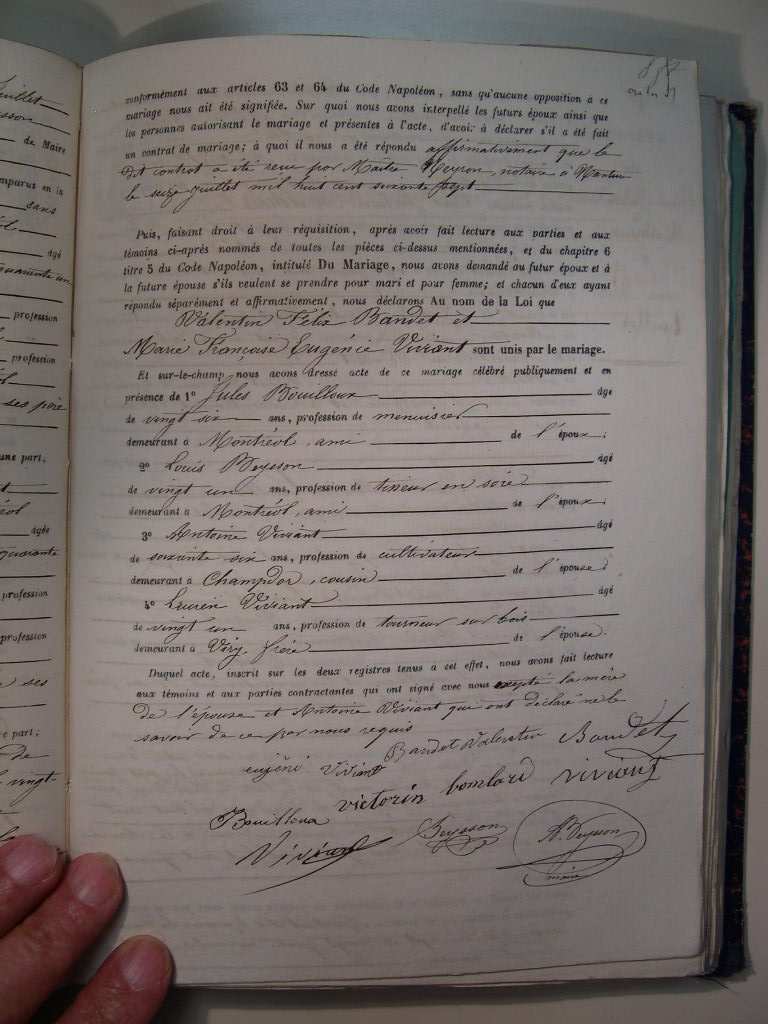 uillet
sson
de Maire
mparus en la
sans
ol
âgé
quarante un
profession
profession
ol
ses père
une part,
t
ol
âgée
quarante
profession
profession
ses
re part;
de
vingt-
conformément aux articles 63 et 64 du Code Napoléon, sans qu'aucune opposition à ce
mariage nous ait été signifiée. Sur quoi nous avons interpellé les futurs époux ainsi que
les personnes autorisant le mariage et présentes à l'acte, d'avoir à déclarer s'il a été fait
un contrat de mariage; à quoi il nous a été répondu affirmativement que le
dit contrat a été reçu par Maître Meyron, notaire à Nantua
le seize juillet mil huit cent soixante sept
Puis, faisant droit à leur réquisition, après avoir fait lecture aux parties et aux
témoins ci-après nommés de toutes les pièces ci-dessus mentionnées, et du chapitre 6
titre 5 du Code Napoléon, intitulé Du Mariage, nous avons demandé au futur époux et à
la future épouse s'ils veulent se prendre pour mari et pour femme; et chacun d'eux ayant
répondu séparément et affirmativement, nous déclarons Au nom de la Loi que
Valentin Félix Baudet et
Marie Françoise Eugénie Viviant sont unis par le mariage.
Et sur-le-champ nous avons dressé acte de ce mariage célébré publiquement et en
présence de 1° Jules Bouilloux âgé
de vingt six ans, profession de menuisier
demeurant à Montréal, ami de l'époux;
2° Louis Beysson âgé
de vingt un ans, profession de tisseur en soie
demeurant à Montréal, ami de l'époux;
3° Antoine Viviant âgé
de soixante six ans, profession de cultivateur
demeurant à Champdor, cousin de l'épouse;
4° Lucien Viviant âgé
de vingt un ans, profession de tourneur sur bois
demeurant à Viry, frère de l'épouse.
Duquel acte, inscrit sur les deux registres tenus à cet effet, nous avons fait lecture
aux témoins et aux parties contractantes qui ont signé avec nous excepté la mère
de l'épouse et Antoine Viviant qui ont déclaré ne le
savoir de ce par nous requis
Baudet Valentin Baudet
eugéni Viviant
victorin bomlard viviant
Bouilloux
Viviant Beysson
maire